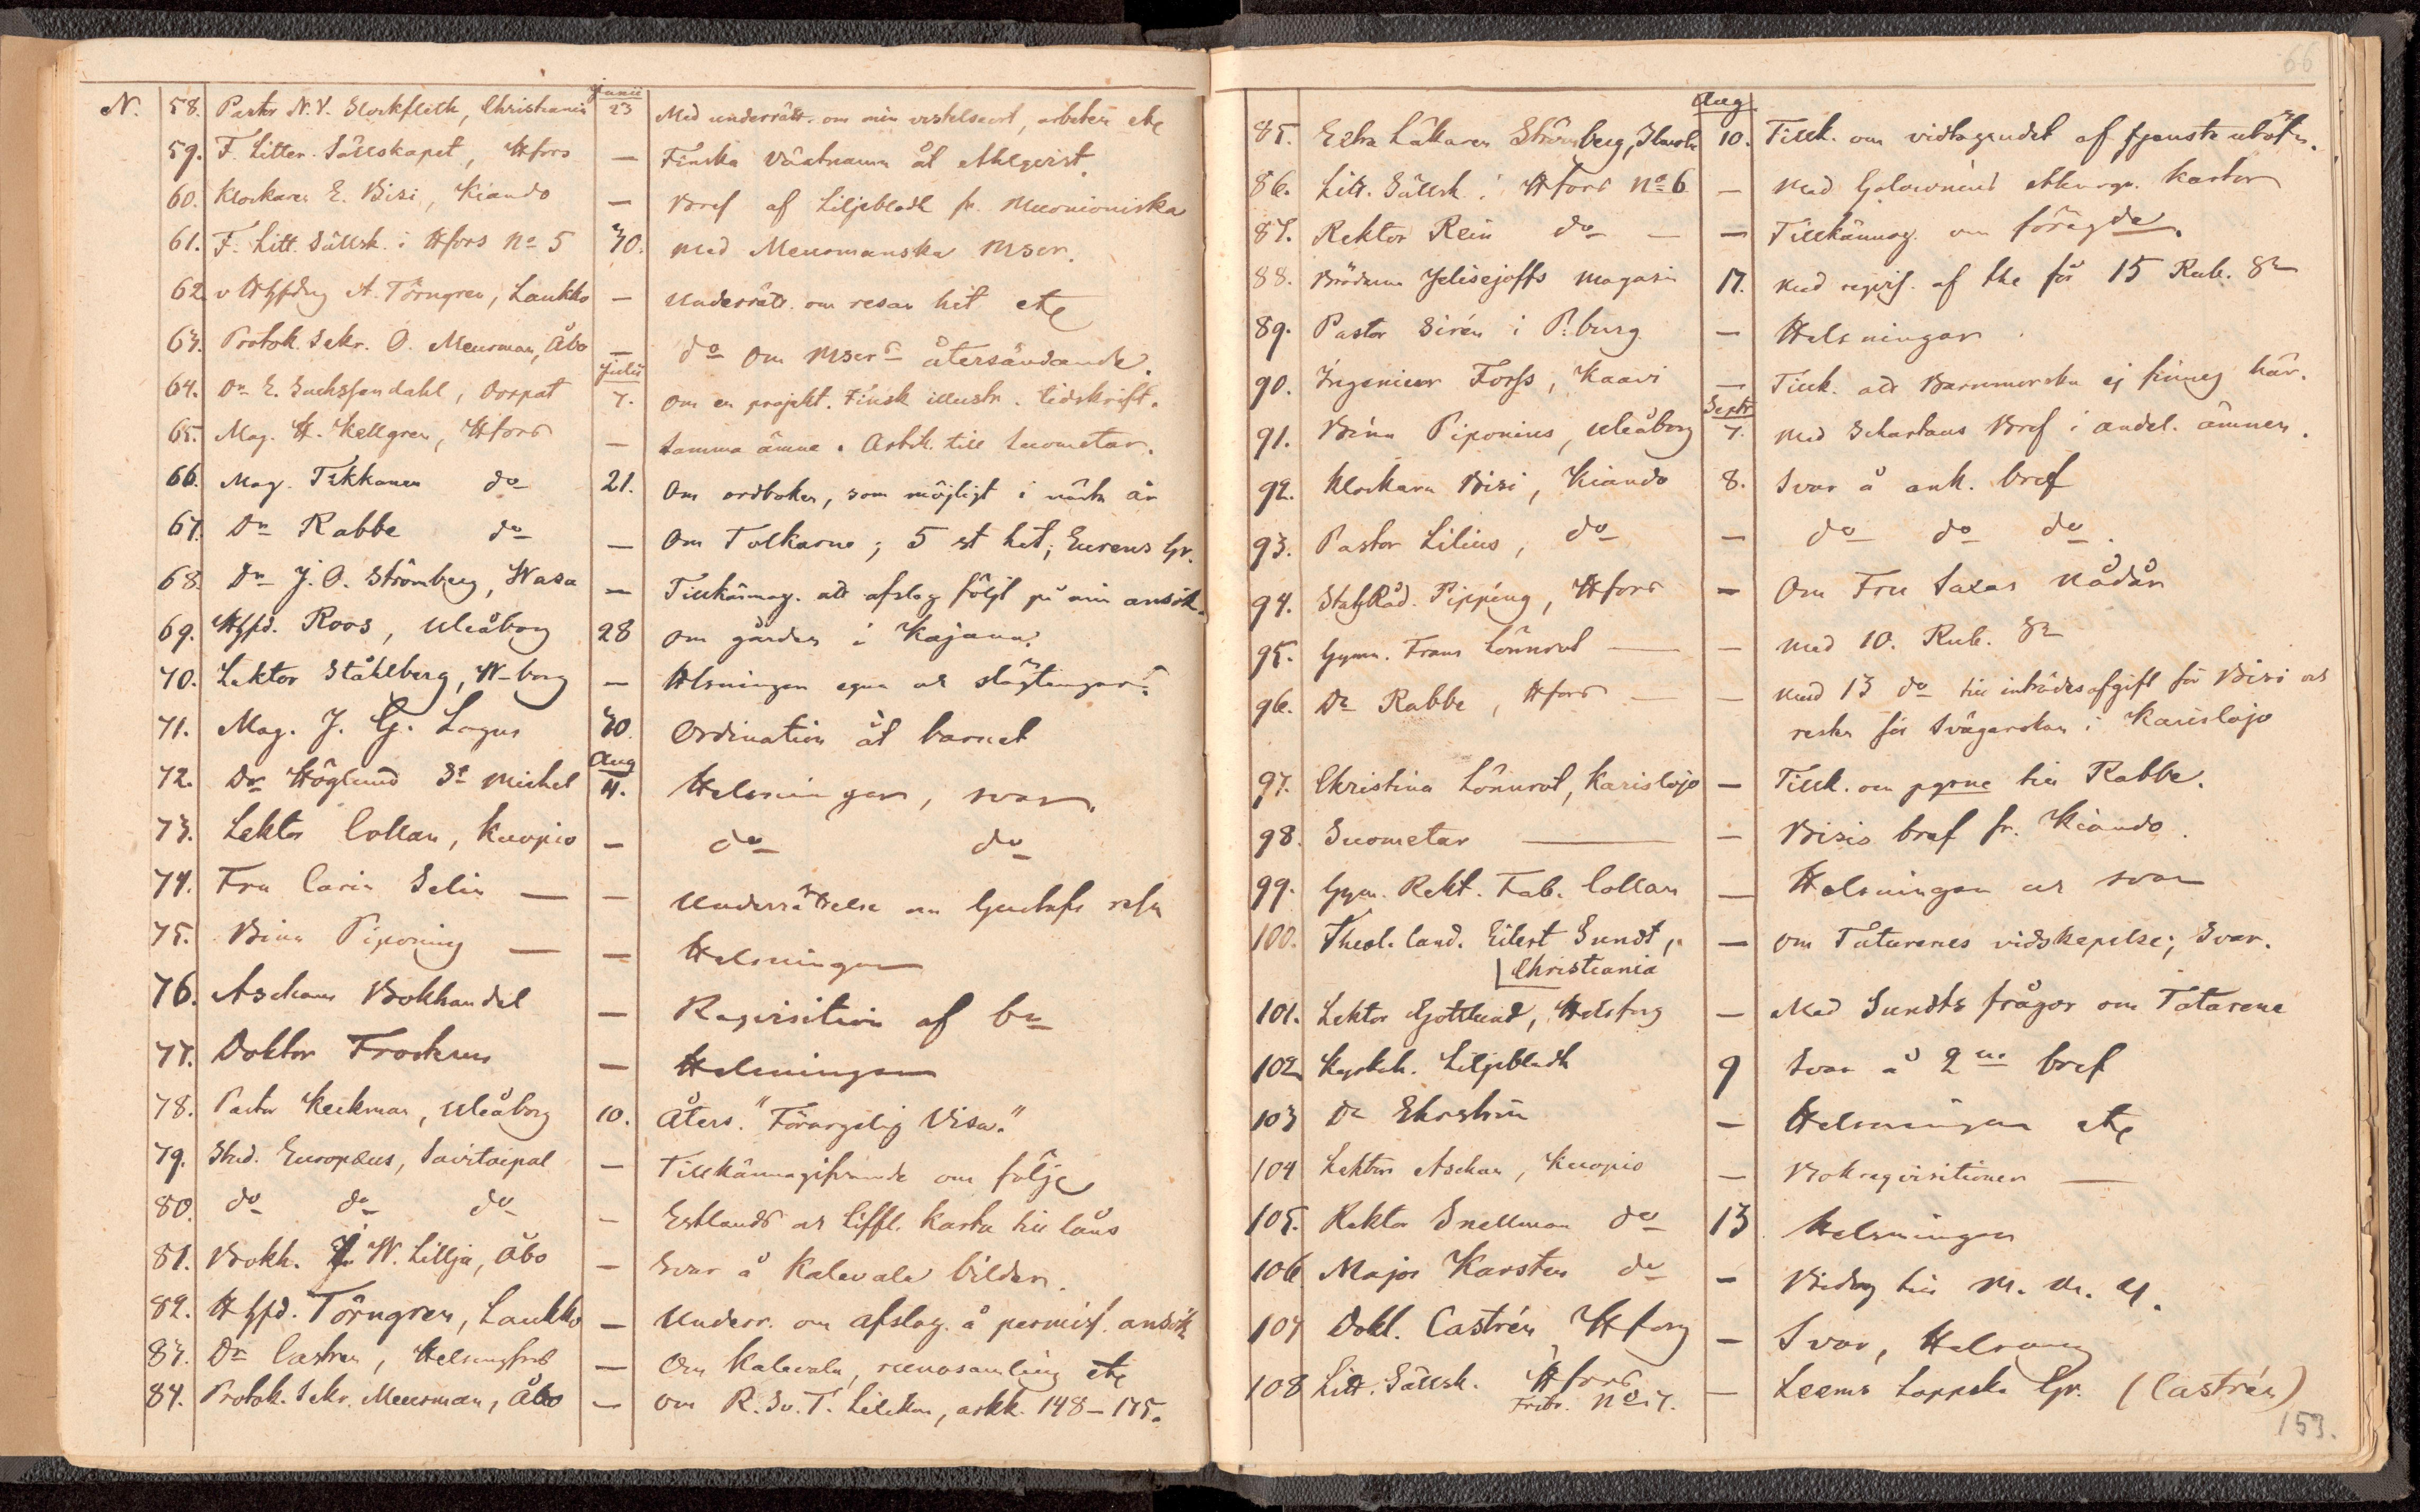 66
N. 58. Pastor N. V. Stockfleth, Christiania Junii 23 Med underrätt. om min vistelseort, arbeten etc
59. F. Litter. Sällskapet, Hfors — Finska växtnamn åt Ahlqvist.
60. Klockaren E. Bisi, Kiando — Bref af Liljebladh fr. Muonioniska
61. F. Litt. Sällsk. i Hfors No 5 30. med Meurmanska Mscr.
62. v Hffdng A. Törngren, Laukko — Underrätt. om resan hit etc
63. Protok. Sekr. O. Meurman, Åbo — do om Mscrs återsändande.
64. Dr E. Sachssendahl, Dorpat Julii 7. Om en projekt. Finsk illustr. tidskrift.
65. Mag. H. Kellgren, Hfors — Samma ämne. Artik. till Suometar.
66. Mag. Tikkanen do 21. Om ordboken, som möjligt i nästa år
67. Dr Rabbe do — Om Tolkarne; 5 st hit; Eurens Gr.
68. Dr J. O. Strömberg, Wasa — Tillkännag. att afslag följt på min ansök.
69. Hffd. Roos, Uleåborg 28 om gården i Kajana.
70. Lektor Ståhlberg, W-borg — Helsningen egna och slägtingars.
71. Mag. J. G. Lagus 30. Ordination åt barnet
72. Dr Höglund St Michel Aug 4. Helsningar, svar.
73. Lektor Collan, Kuopio — do do
74. Fru Carin Selin — — Underrättelse om Gustafs resa
75. Bina Piponius — — Helsningar
76. Aschans Bokhandel — Reqvisition af br
77. Doktor Frosterus — Helsningar
78. Pastor Keckman, Uleåborg 10. Åters. "Förargelig Visa."
79. Stud. Europæus, Savitaipal — Tillkännagifvande om följe
80. do do do — Estlands och Liffl. karta till låns
81. Bokh. J. W. Lillja, Åbo — Svar å Kalevala bilder.
82. Hffd. Törngren, Laukko — Underr. om afslag å permiss. ansök
83. Dr Castren, Helsingfors — Om Kalevala, runosamling etc
84. Protok. Sekr. Meurman, Åbo — om R. Sv. T. Lexikon, arkk. 148–175.
85. Extra Läkaren Strömberg, Aug 10. Tillk. om vidtagandet af tjenste utöfn.
86. Litt. Sällsk. i Hfors No 6 — med Golownins kartor
87. Rektor Rein do — — Tillkännag. om föregde.
88. Bröderna Jelisejeffs magasin 17. med reqvis. af the för 15 Rub. Sr
89. Pastor Sirén i P:burg — Helsningar.
90. Ingenieur Forss, Kaavi — Tillk. att Barnmorska ej finnes här.
91. Bina Piponius, Uleåborg Septr 7. med Schartaus Bref i andel. ämnen.
92. Klockaren Bisi, Kiando 8. Svar å ank. bref
93. Pastor Lilius, do — do do do.
94. Stats Råd. Pipping, Hfors — Om Fru Saxas nådår
95. Gymn. Frans Lönnrot — — med 10. Rub. Sr
96. Dr Rabbe, Hfors — — med 13 do till inträdesafgift för Bisi och
resten för Svägerskan i Karislojo
97. Christina Lönnrot, Karislojo — Tillk. om pgrne till Rabbe.
98. Suometar — — Bisis bref fr. Kiando.
99. Gym. Rekt. Fab. Collan — Helsningar och svar
100. Theol. Cand. Eilert Sundt, — om Tatarenes vidskepelse; Svar.
Christiania
101. Lektor Gottlund, Helsfors — Med Sundts frågor om Tatarene
102 Liljebladh 9 Svar å 2ne bref
103 Dr Ehrström — Helsningar etc
104 Lektor Aschan, Kuopio — Bokreqvisitioner —
105. Rektor Snellman do 13 Helsningar
106 Major Karsten do — Bidrag till M. M. y.
107 Dokt. Castrén Hfors — Svar, Helsning
108 Litt. Sällsk. Hfors — Leems Lappska Gr. (Castrén)
No 7.
153.